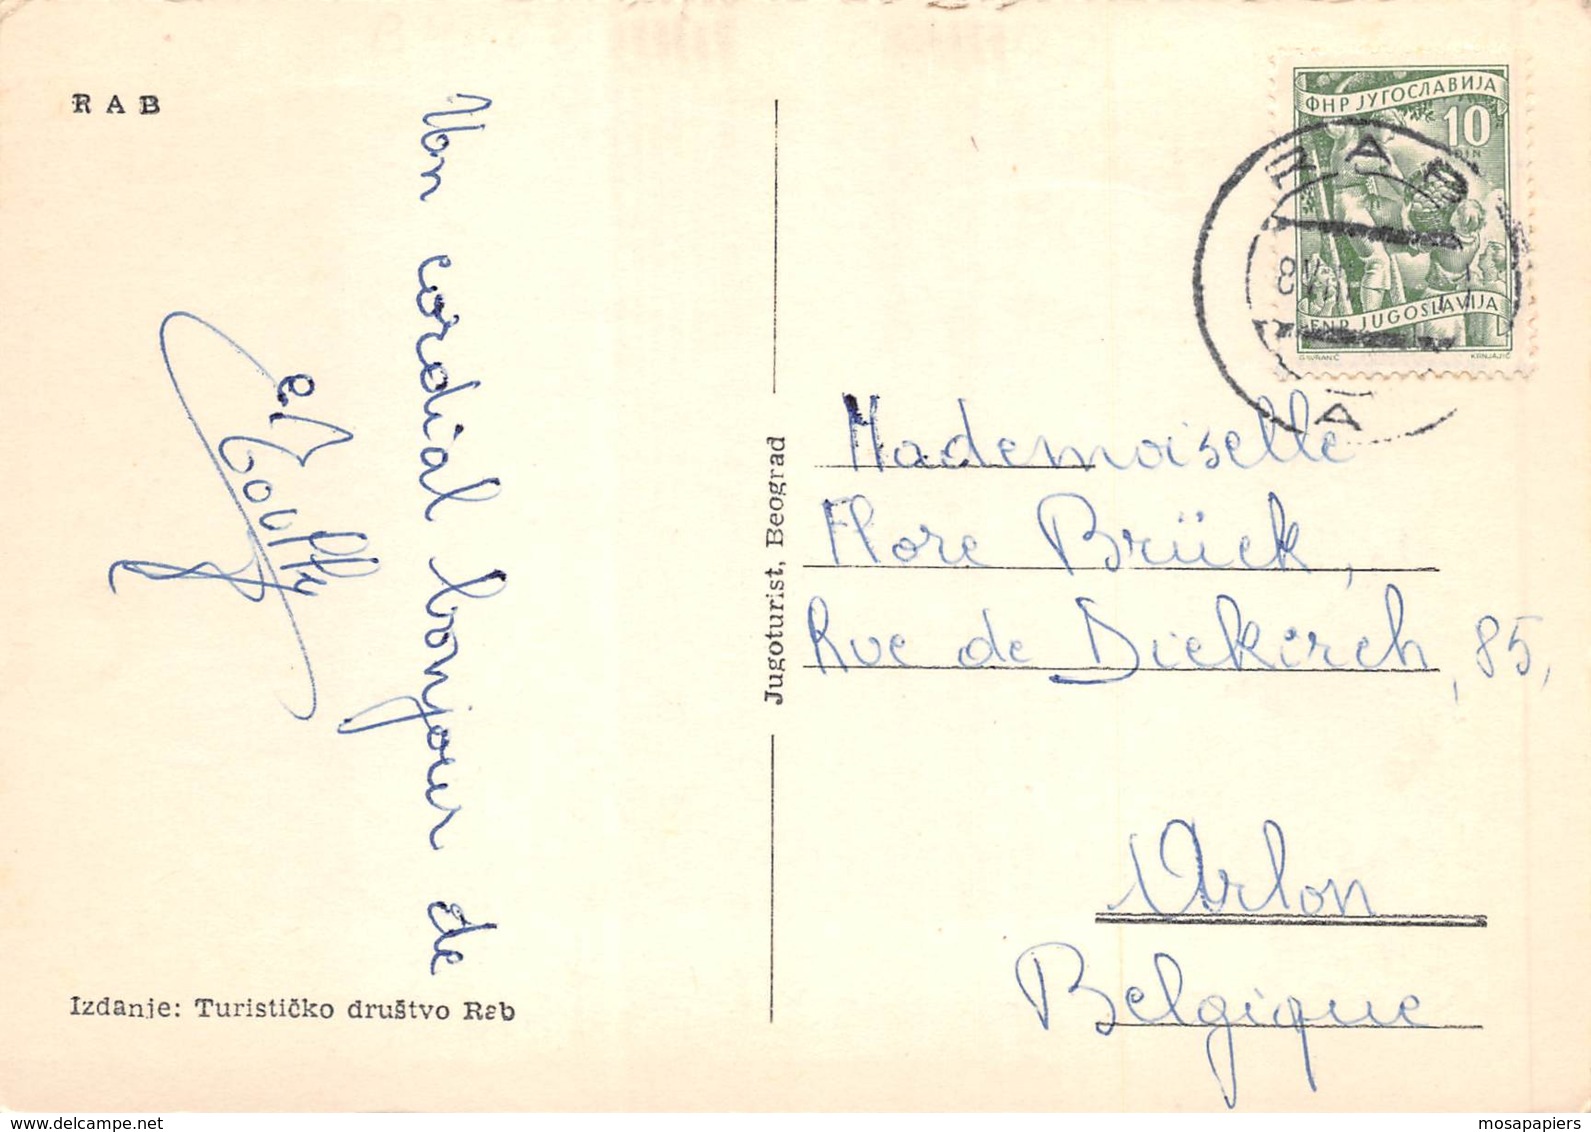 RAB
Un cordial bonjour de
Izdanje: Turističko društvo Rab
Jugoturist, Beograd
ФНР ЈУГОСЛАВИЈА
10
DIN
FNR JUGOSLAVIJA
KRNJAJIĆ
8 VII
Mademoiselle
Flore Brück,
Rue de Diekirch, 85,
Arlon
Belgique
www.delcampe.net
mosapapiers